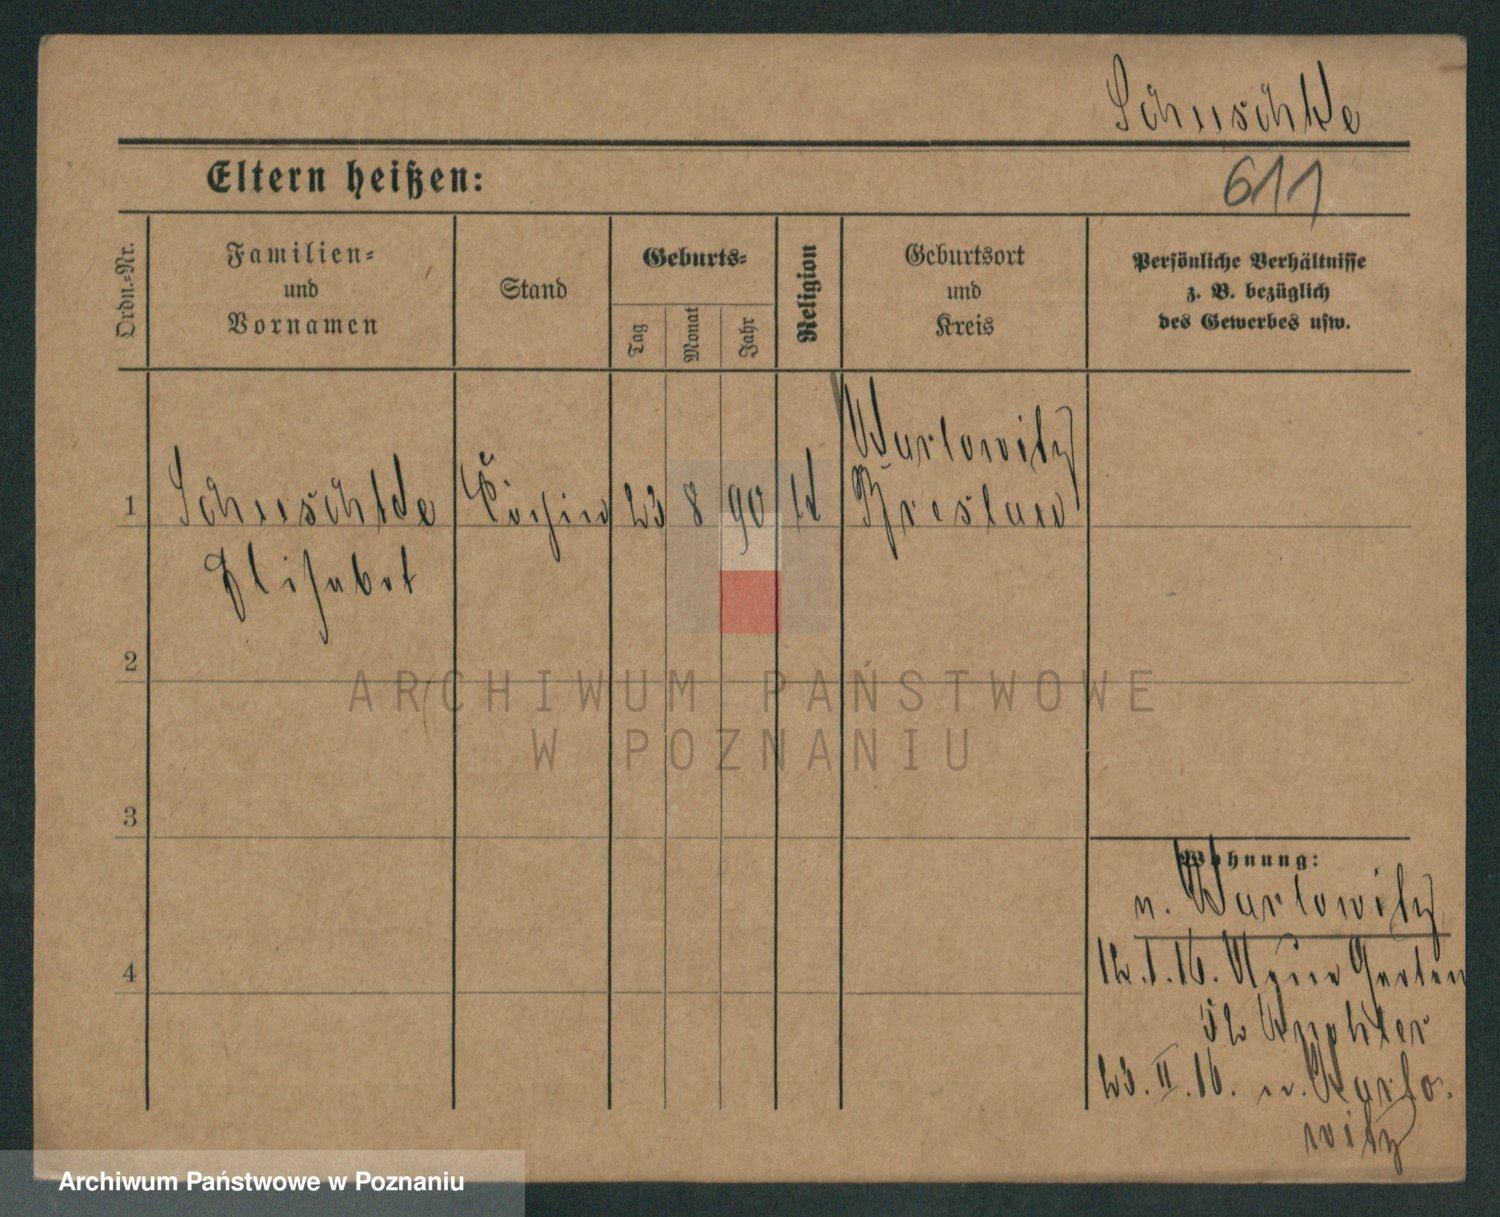 Schuschke
Eltern heißen:
611
Ordn.=Nr.
Familien=
und
Vornamen
Stand
Geburts=
Tag
Monat
Jahr
Religion
Geburtsort
und
Kreis
Persönliche Verhältnisse
z. B. bezüglich
des Gewerbes usw.
1
Schuschke
Elisabet
Köchin
23
8
90
Breslau
2
3
4
ARCHIWUM PAŃSTWOWE
W POZNANIU
Wohnung:
n.
12.I.16. Neue Garten
52
23.II.16. n.
Archiwum Państwowe w Poznaniu